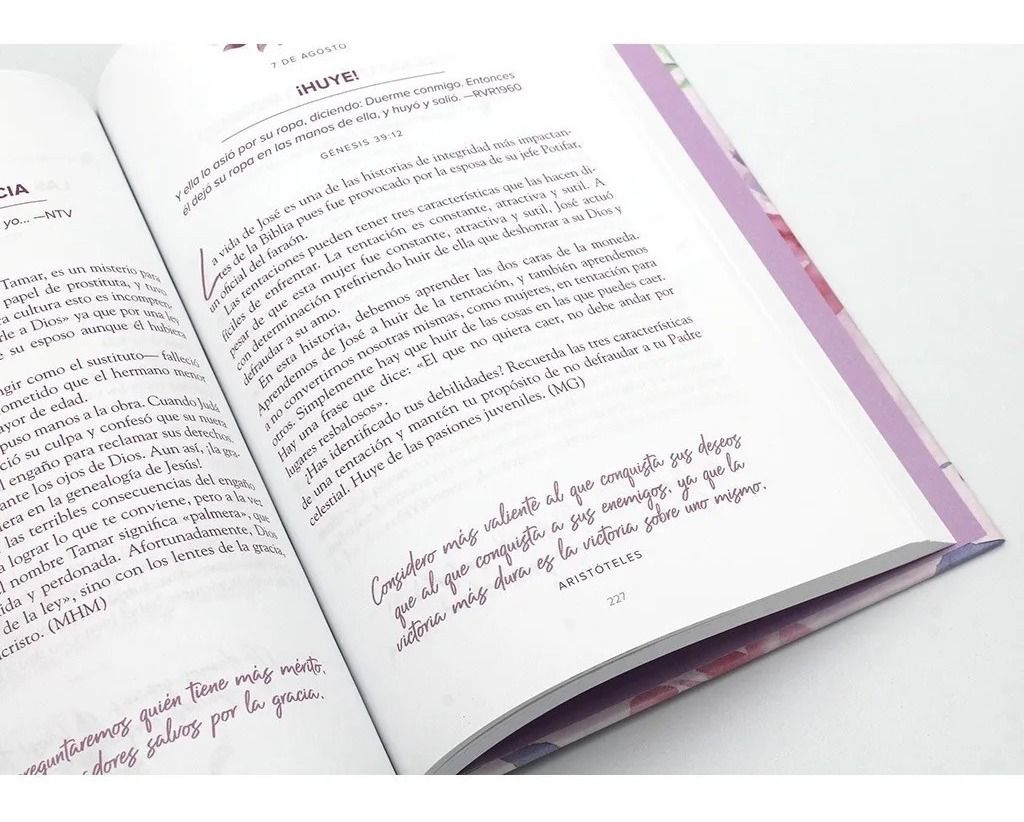 CIA
yo... —NTV
Tamar, es un misterio para
papel de prostituta, y tuvo
a cultura esto es incompren-
le a Dios» ya que por una ley
e su esposo aunque él hubiera
ngir como el sustituto— falleció
ometido que el hermano menor
ayor de edad.
puso manos a la obra. Cuando Judá
ció su culpa y confesó que su nuera
engaño para reclamar sus derechos.
ante los ojos de Dios. Aun así, ¡la gra-
era en la genealogía de Jesús!
las terribles consecuencias del engaño
a lograr lo que te conviene, pero a la vez
l nombre Tamar significa «palmera», que
ida y perdonada. Afortunadamente, Dios
de la ley», sino con los lentes de la gracia,
cristo. (MHM)
reguntaremos quién tiene más mérito,
adores salvos por la gracia.
7 DE AGOSTO
¡HUYE!
Y ella lo asió por su ropa, diciendo: Duerme conmigo. Entonces
él dejó su ropa en las manos de ella, y huyó y salió. —RVR1960
GÉNESIS 39:12
La vida de José es una de las historias de integridad más impactan-
tes de la Biblia pues fue provocado por la esposa de su jefe Potifar,
un oficial del faraón.
Las tentaciones pueden tener tres características que las hacen di-
fíciles de enfrentar. La tentación es constante, atractiva y sutil. A
pesar de que esta mujer fue constante, atractiva y sutil, José actuó
con determinación prefiriendo huir de ella que deshonrar a su Dios y
defraudar a su amo.
En esta historia, debemos aprender las dos caras de la moneda.
Aprendemos de José a huir de la tentación, y también aprendemos
a no convertirnos nosotras mismas, como mujeres, en tentación para
otros. Simplemente hay que huir de las cosas en las que puedes caer.
Hay una frase que dice: «El que no quiera caer, no debe andar por
lugares resbalosos».
¿Has identificado tus debilidades? Recuerda las tres características
de una tentación y mantén tu propósito de no defraudar a tu Padre
celestial. Huye de las pasiones juveniles. (MG)
Considero más valiente al que conquista sus deseos
que al que conquista a sus enemigos, ya que la
victoria más dura es la victoria sobre uno mismo.
ARISTÓTELES
227